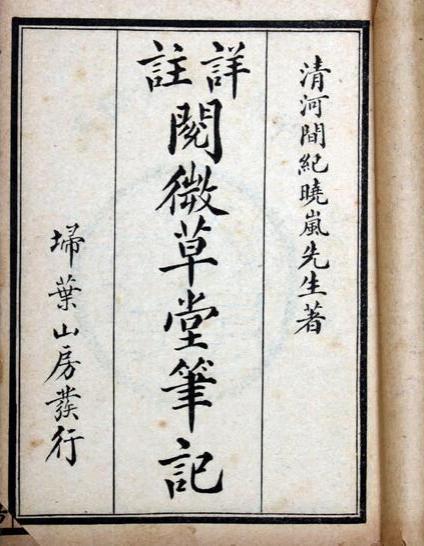 清河間紀曉嵐先生著
詳註
閱微草堂筆記
埽葉山房發行